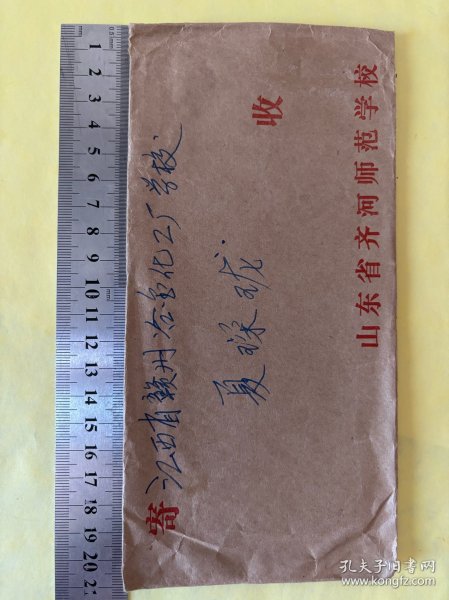 寄 江西省赣州冶金化工厂学校
夏
收
山东省齐河师范学校
0.5mm
1 2 3 4 5 6 7 8 9 10 11 12 13 14 15 16 17 18 19 20 21
孔夫子旧书网
www.kongfz.com